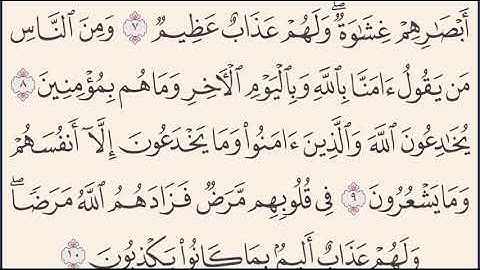 أَبْصَٰرِهِمْ غِشَٰوَةٌۖ وَلَهُمْ عَذَابٌ عَظِيمٌ ٧ وَمِنَ ٱلنَّاسِ
مَن يَقُولُ ءَامَنَّا بِٱللَّهِ وَبِٱلْيَوْمِ ٱلْأَخِرِ وَمَا هُم بِمُؤْمِنِينَ ٨
يُخَٰدِعُونَ ٱللَّهَ وَٱلَّذِينَ ءَامَنُوا۟ وَمَا يَخْدَعُونَ إِلَّآ أَنفُسَهُمْ
وَمَا يَشْعُرُونَ ٩ فِى قُلُوبِهِم مَّرَضٌ فَزَادَهُمُ ٱللَّهُ مَرَضًاۖ
وَلَهُمْ عَذَابٌ أَلِيمٌۢ بِمَا كَانُوا۟ يَكْذِبُونَ ١٠